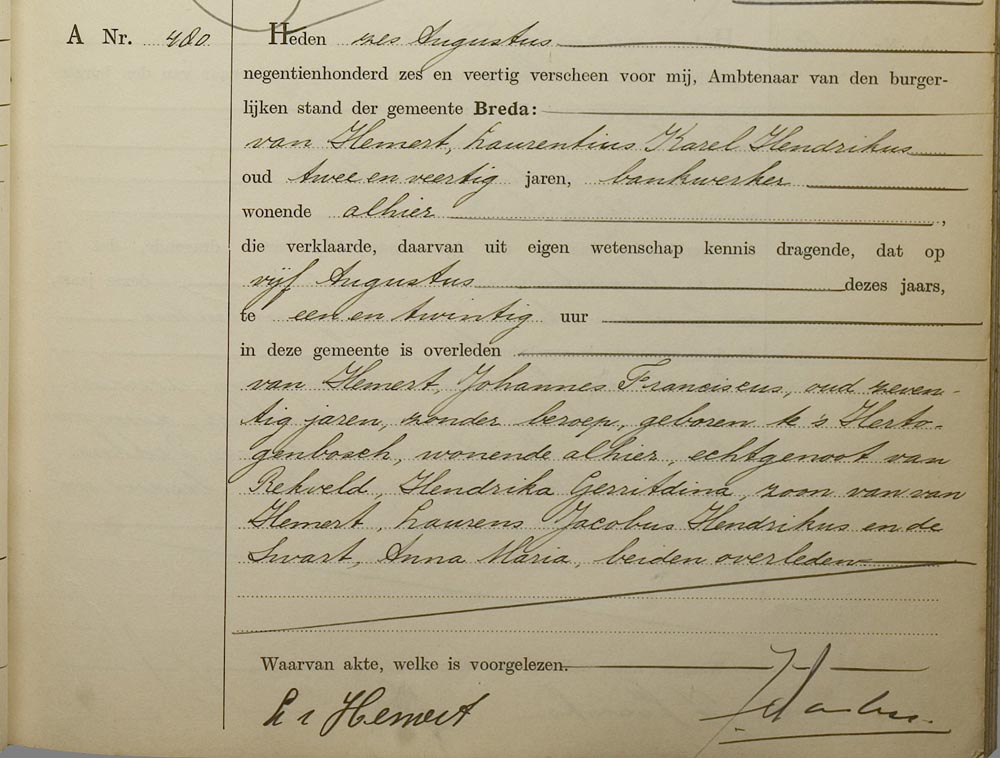 A Nr. 480
Heden zes Augustus
negentienhonderd zes en veertig verscheen voor mij, Ambtenaar van den burger-
lijken stand der gemeente Breda:
van Hemert, Laurentius Karel Hendrikus
oud twee en veertig jaren, bankwerker
wonende alhier ,
die verklaarde, daarvan uit eigen wetenschap kennis dragende, dat op
vijf Augustus dezes jaars,
te een en twintig uur
in deze gemeente is overleden
van Hemert, Johannes Franciscus, oud zeven-
tig jaren, zonder beroep, geboren te 's Herto-
genbosch, wonende alhier, echtgenoot van
Rekveld, Hendrika Gerritdina, zoon van van
Hemert, Laurens Jacobus Hendrikus en de
Swart, Anna Maria, beiden overleden
Waarvan akte, welke is voorgelezen.
L v Hemert